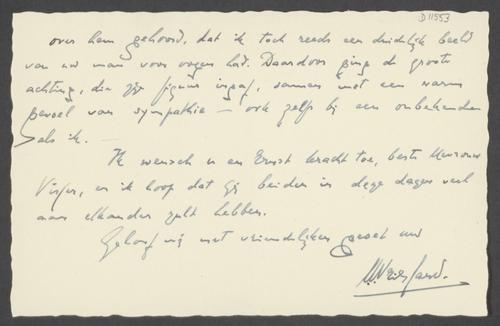 D 11553
over hem gehoord, dat ik toch reeds een duidelijk beeld
van uw man voor oogen had. Daardoor ging de groote
achting, die zijn figuur ingaf, samen met een warm
gevoel van sympathie – ook zelfs bij een onbekenden
als ik. —
Ik wensch u en Ernst kracht toe, beste Mevrouw
en ik hoop dat gij beiden in deze dagen veel
aan elkander zult hebben.
Geloof mij met vriendelijken groet uw